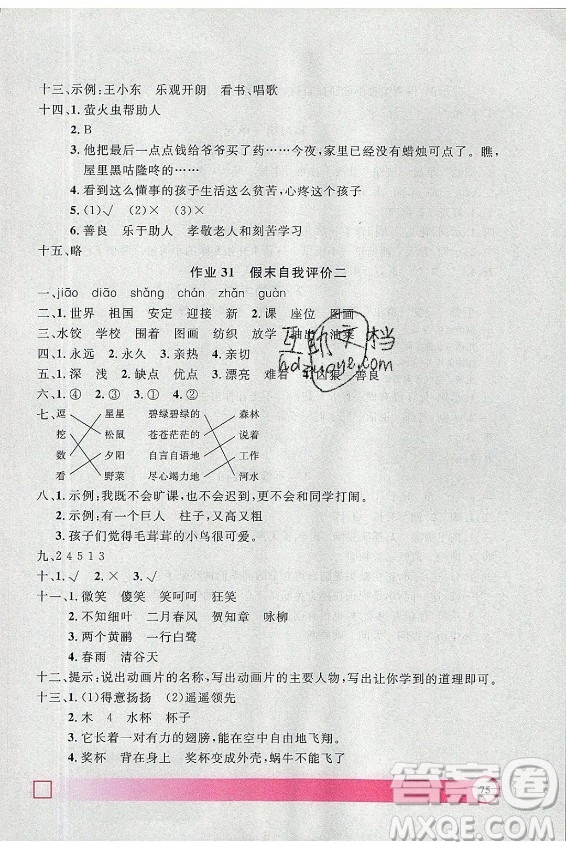 十三、示例:王小东 乐观开朗 看书、唱歌
十四、1.萤火虫帮助人
2.B
3.他把最后一点点钱给爷爷买了药……今夜,家里已经没有蜡烛可点了。瞧,
屋里黑咕隆咚的……
4.看到这么懂事的孩子生活这么贫苦,心疼这个孩子
5.(1)√ (2)× (3)×
6.善良 乐于助人 孝敬老人和刻苦学习
十五、略
作业 31 假末自我评价二
一、jiāo diāo shǎng chán zhǎn guàn
二、1.世界 祖国 安定 迎接 新 2.课 座位 图画
三、水饺 学校 围着 图画 纺织 放学 抽出 油菜
四、1.永远 2.永久 3.亲热 4.亲切
五、1.深 浅 2.缺点 优点 3.漂亮 难看 4.凶狠 善良
六、1.④ 2.③ 3.② 4.①
七、逗 星星 碧绿碧绿的 森林
挖 松鼠 苍苍茫茫的 说着
数 夕阳 自言自语地 工作
看 野菜 尽心竭力地 河水
八、1.示例:我既不会旷课,也不会迟到,更不会和同学打闹。
2.示例:有一个巨人 柱子,又高又粗
3.孩子们觉得毛茸茸的小鸟很可爱。
九、2 4 5 1 3
十、1.√ 2.× 3.√
十一、1.微笑 傻笑 笑呵呵 狂笑
2.不知细叶 二月春风 贺知章 咏柳
3.两个黄鹂 一行白鹭
4.春雨 清谷天
十二、提示:说出动画片的名称,写出动画片的主要人物,写出让你学到的道理即可。
十三、1.(1)得意扬扬 (2)遥遥领先
2.木 4 水杯 杯子
3.仗着长着一对有力的翅膀,能在空中自由地飞翔。
4.奖杯 背在身上 奖杯变成外壳,蜗牛不能飞了
75
互助文档
hdzuoye.com
答案圈
MXQE.COM